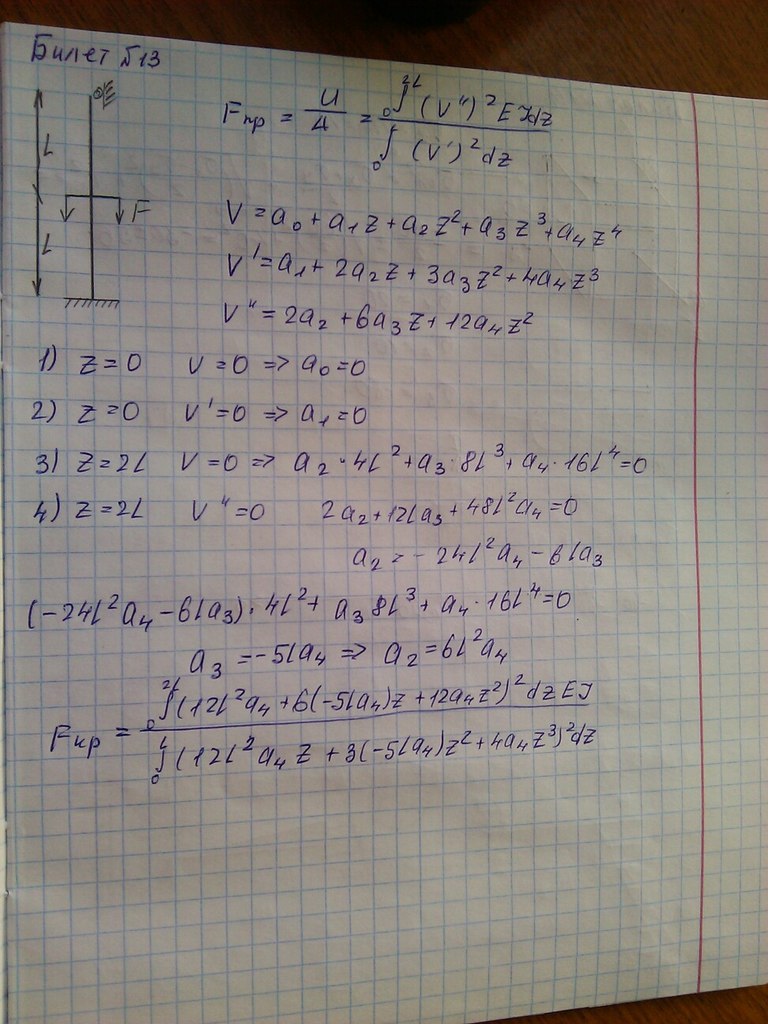 Билет №13
L
L
F
Fкр = U/4 = ∫₀²ᴸ (V")² EJdz / ∫₀ᴸ (V')² dz
V = a₀ + a₁z + a₂z² + a₃z³ + a₄z⁴
V' = a₁ + 2a₂z + 3a₃z² + 4a₄z³
V" = 2a₂ + 6a₃z + 12a₄z²
1) z=0 V=0 => a₀=0
2) z=0 V'=0 => a₁=0
3) z=2l V=0 => a₂·4l² + a₃·8l³ + a₄·16l⁴=0
4) z=2l V"=0 2a₂+12la₃+48l²a₄=0
a₂ = -24l²a₄ - 6la₃
(-24l²a₄ - 6la₃)·4l² + a₃8l³ + a₄·16l⁴=0
a₃ = -5la₄ => a₂ = 6l²a₄
Fкр = ∫₀²ᴸ (12l²a₄ + 6(-5la₄)z + 12a₄z²)² dz EJ / ∫₀ᴸ (12l²a₄z + 3(-5la₄)z² + 4a₄z³)² dz